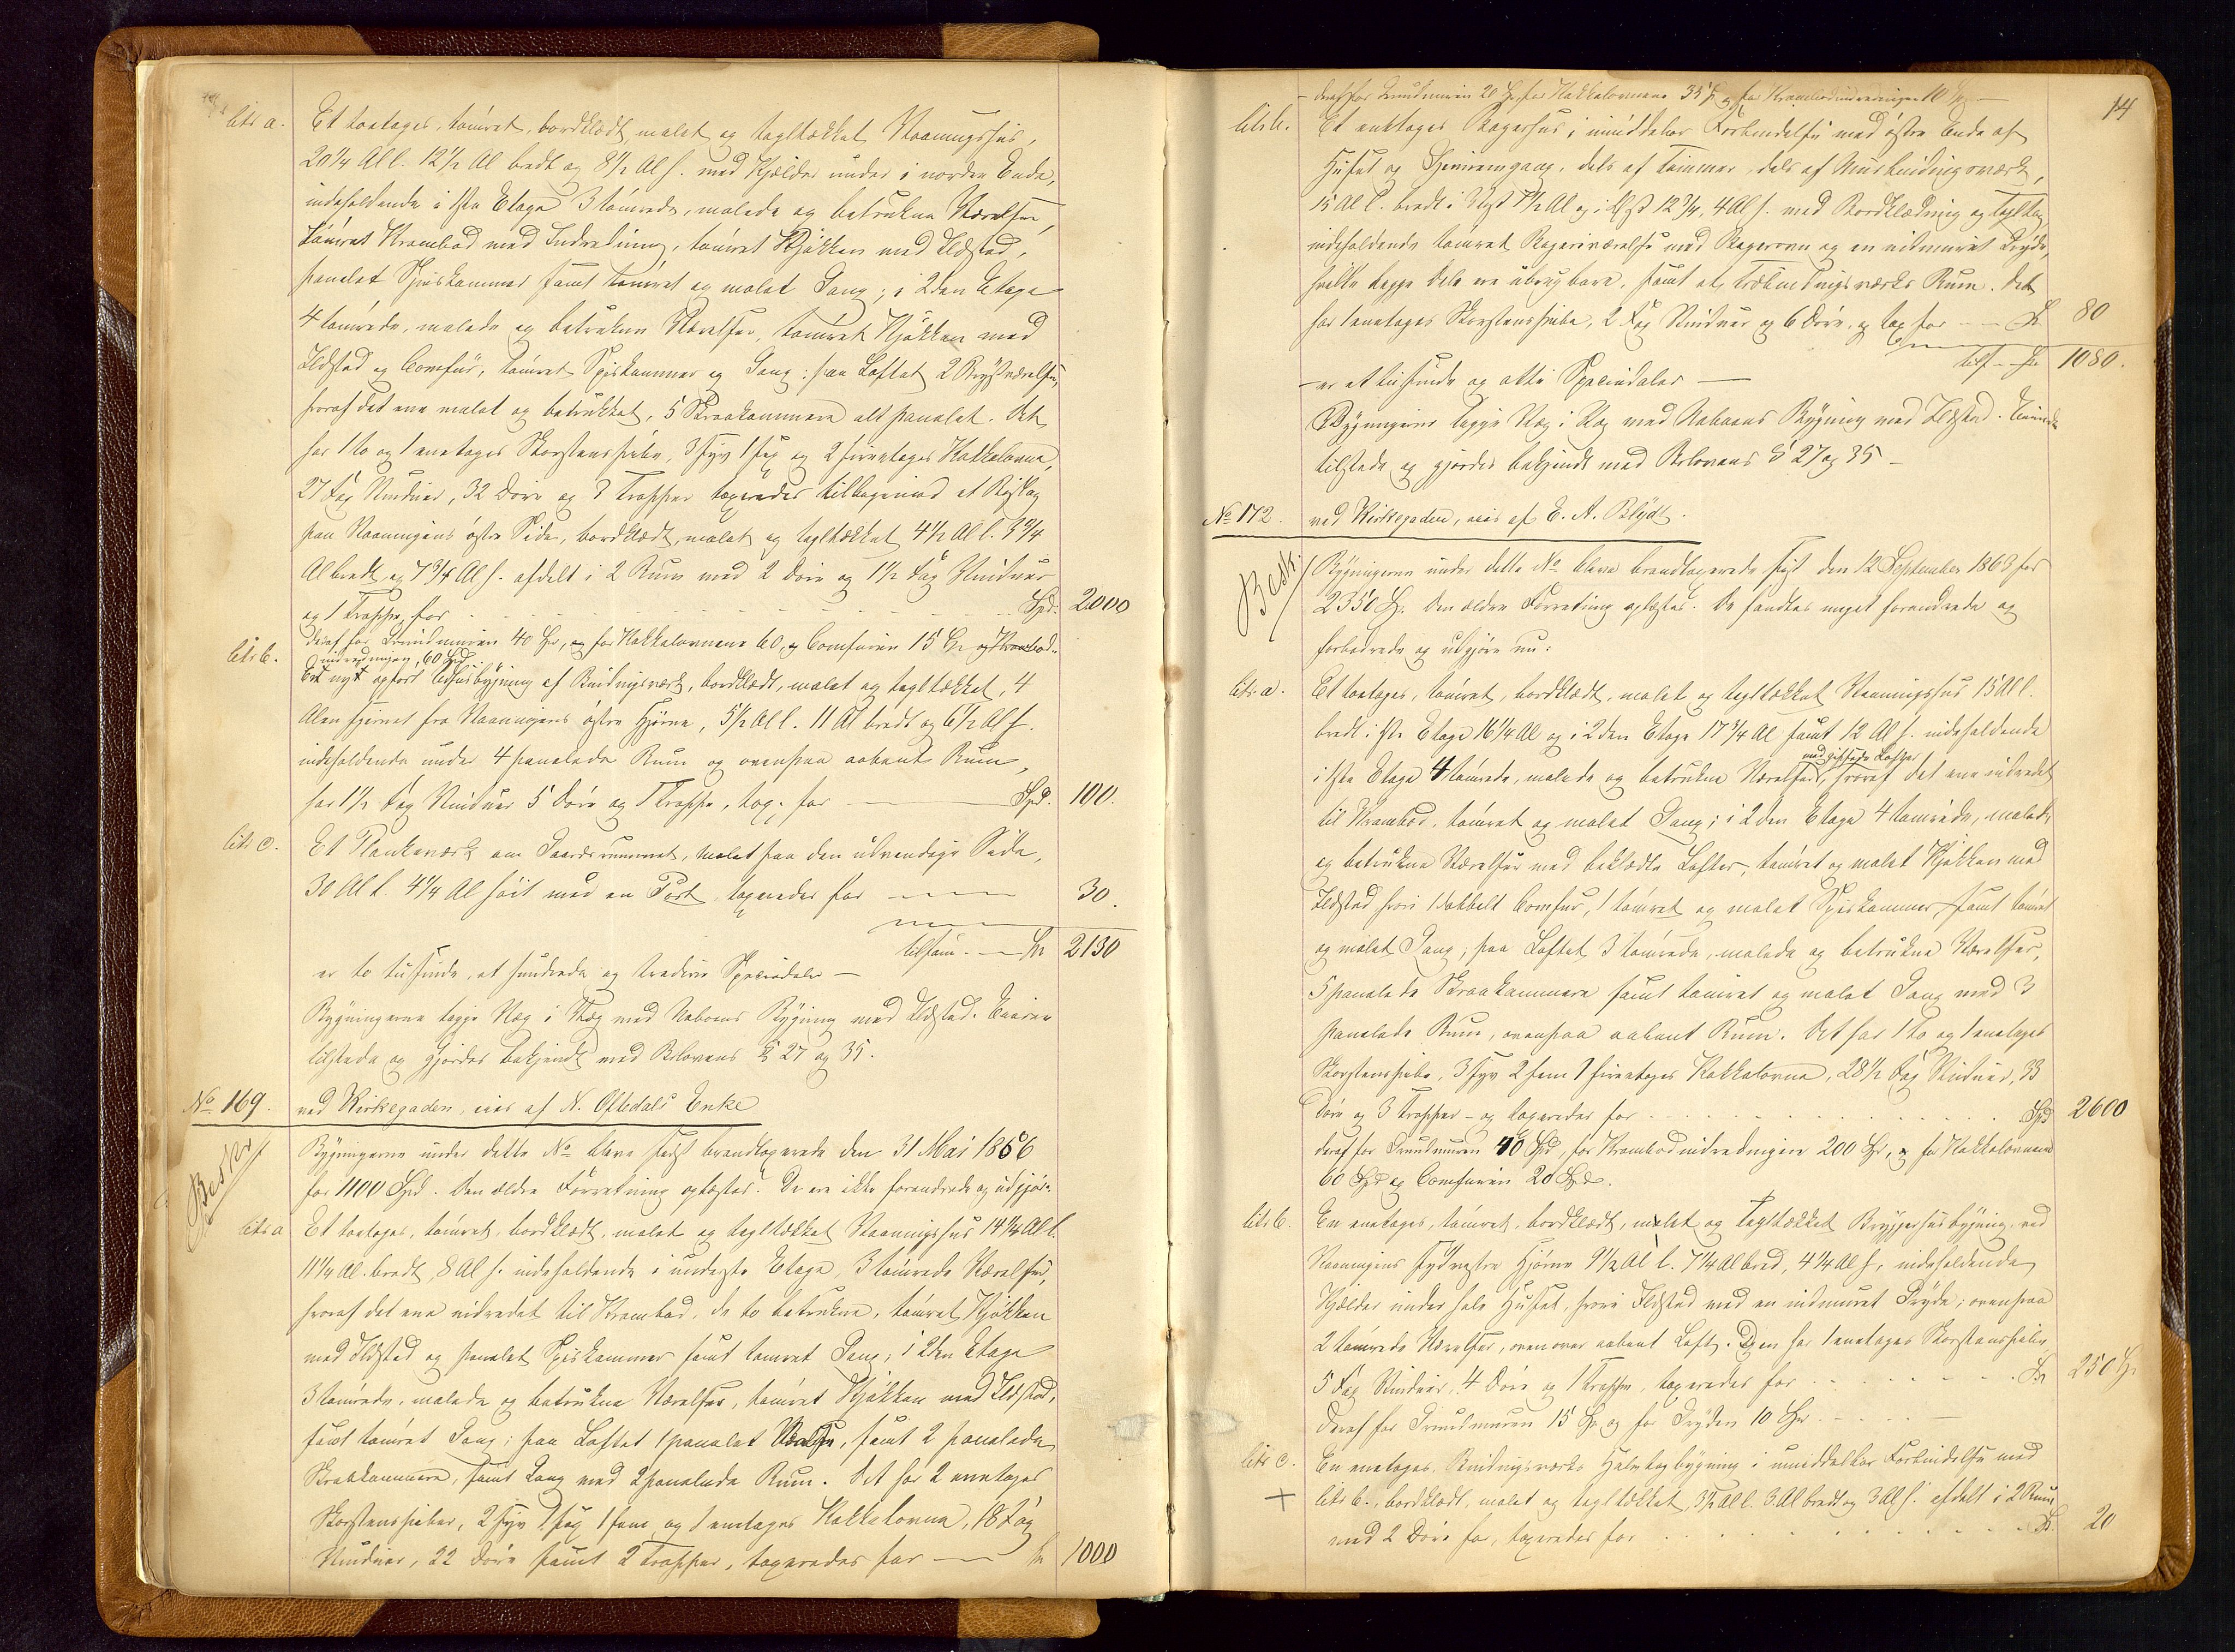 litr a. Et toetages, tømret, bordklædt, malet og tagltækket Vaaningshus,
20 1/4 Al l. 12 1/2 Al bredt og 8 1/2 Al h. med Kjelder under i nordre Ende,
indeholdende i 1ste Etage 3 tømrede, malede og betrukne Værelser,
tømret Krambod med Indredning, tømret Kjøkken med Ildsted,
panelet Spiskammer samt tømret og malet Gang; i 2den Etage
4 tømrede, malede og betrukne Værelser, tømret Kjøkken med
Ildsted og Comfur, tømret Spiskammer og Gang; paa Loftet 2 Qvistværelser,
hvoraf det ene malet og betrukket, 5 Skraakammere alt panelet. Det
har 1 to og 1 eenetages Skorstenspibe, 3 syv 1 sex og 2 fireetages Kakkelovne,
27 Fag Vinduer, 32 Døre og 3 Trapper taxeredes tilligemed et Bislag
paa Vaaningens østre Side, bordklædt, malet og tagltækket 4 1/2 Al l. 3 3/4
Al bredt og 7 3/4 Al h. afdelt i 2 Rum med 2 Døre og 1 1/2 Fag Vinduer
og 1 Trappe, for - - - Spd. 2000
deraf for Grundmuren 40 Spd, og for Kakkelovnene 60, og Comfuren 15 Spd og Krambod-
indredningen 60 Spd.
litr b. Et nyt opført Udhusbygning af Bindingsværk, bordklædt, malet og tagltækket, 4
Alen fjernet fra Vaaningens østre Hjørne, 5 1/2 Al l. 11 Al bredt og 6 1/2 Al h.
indeholdende under 4 panelede Rum og ovenpaa aabent Rum,
har 1 1/2 Fag Vinduer 5 Døre og 1 Trappe, tax. for — Spd. 100.
litr c. Et Plankeværk om Gaardsrummet, malet paa den udvendige Side,
30 Al l. 4 1/4 Al høit med en Port, taxeredes for — 30.
tilsam. — Spd 2130
er to tusinde, et hundrede og tredive Speciedaler —
Bygningerne ligge Væg i Væg med Naboens Bygning med Ildsted. Eieren
tilstede og gjordes bekjendt med Brlovens § 27 og 35.
No 169. ved Kirkegaden, eies af N. Oftedals Enke
Beskr.
Bygningerne under dette No bleve sidst brandtaxerede den 31 Mai 1856
for 1100 Spd. Den ældre Forretning oplæstes. De ere ikke forandrede og udgjør:
litr a Et toetages, tømret, bordklædt, malet og tagltækket Vaaningshus 14 1/4 Al l.
11 1/4 Al. bredt, 8 Al h. indeholdende i underste Etage 3 tømrede Værelser,
hvoraf det ene indredet til Krambod, de to betrukne, tømret Kjøkken
med Ildsted og panelet Spiskammer samt tømret Gang; i 2den Etage
3 tømrede, malede og betrukne Værelser, tømret Kjøkken med Ildsted,
samt tømret Gang; paa Loftet 1 panelet Værelse, samt 2 panelede
Skraakammere, samt Gang med 2 panelede Rum. Det har 2 eenetages
Skorstenspiber, 2 syv 1 sex 1 fem og 1 eenetages Kakkelovne, 18 Fag
Vinduer, 22 Døre samt 2 Trapper, taxeredes for — Spd 1000
14
- deraf for Grundmuren 20 Spd, for Kakkelovnene 35 Spd og for Krambodindredningen 10 Spd —
litr b. Et eenetages Bagerhus i umiddelbar Forbindelse med østre Ende af
Huset og Gjennemgang, dels af Tømmer, dels af Murbindingsværk,
15 Al l. bredt i Vest 7 1/2 Al og i Øst 12 3/4, 4 Al h. med Bordklædning og Tagltag
indeholdende tømret Bageriværelse med Bagerovn og en indmuret Gryde,
hvilke begge Dele ere ubrugbare, samt et Træbindingsværks Rum. Det
har 1 eenetages Skorstenspibe, 2 Fag Vinduer og 6 Døre, og tax for — Spd 80
tils. — Spd 1080.
— er et tusinde og otti Speciedaler —
Bygningerne ligge Væg i Væg med Naboens Bygning med Ildsted. Eieren
tilstede og gjordes bekjendt med Brlovens § 27 og 35 —
No 172. ved Kirkegaden, eies af E. A. Bløde.
Beskr.
Bygningerne under dette No bleve brandtaxerede sidst den 12 September 1863 for
2350 Spd. Den ældre Forretning oplæstes. De fandtes meget forandrede og
forbedrede og udgjøre nu:
litr. a. Et toetages, tømret, bordklædt, malet og tagltækket Vaaningshus 15 Al l.
bredt i 1ste Etage 16 1/4 Al og i 2den Etage 17 3/4 Al samt 12 Al h. indeholdende
med gipsede Lofter
i 1ste Etage 4 tømrede, malede og betrukne Værelser, hvoraf det ene indredet
til Krambod, tømret og malet Gang; i 2den Etage 4 tømrede, malede
og betrukne Værelser med beklædte Lofter, tømret og malet Kjøkken med
Ildsted hvori 1 dobbelt Comfur, 1 tømret og malet Spiskammer, samt tømret
og malet Gang; paa Loftet 3 tømrede, malede og betrukne Værelser,
5 panelede Skraakammere samt tømret og malet Gang med 3
panelede Rum, ovenpaa aabent Rum. Det har 1 to og 1 eenetages
Skorstenspibe, 3 syv 2 fem 1 fireetages Kakkelovne, 28 1/2 Fag Vinduer, 33
Døre og 3 Trapper - og taxeredes for - - - Spd 2600
deraf for Grundmuren 40 Spd, for Krambodindredningen 200 Spd, og for Kakkelovnene
60 Spd og Comfuren 20 Spd.
litr b. En eenetages, tømret, bordklædt, malet og tagltækket Bryggerhusbygning ved
Vaaningens sydvestre Hjørne 9 1/2 Al l. 7 1/4 Al bred, 4 1/4 Al h, indeholdende
Kjelder under hele Huset, hvori Ildsted med en indmuret Gryde; ovenpaa
2 tømrede Værelser, ovenover aabent Loft. Den har 1 eenetages Skorstenspibe,
5 Fag Vinduer, 4 Døre og 1 Trappe, taxeredes for - - - Spd 250 Spd
Deraf for Grundmuren 15 Spd og for Gryden 10 Spd. - - -
litr c. En eenetages Bindingsværks Halvtagbygning i umiddelbar Forbindelse med
+ litr b., bordklædt, malet og tagltækket, 3 1/2 Al l. 3 Al bredt og 3 Al h. afdelt i 2 Rum
med 2 Døre for, taxeredes for - - - Spd. 20